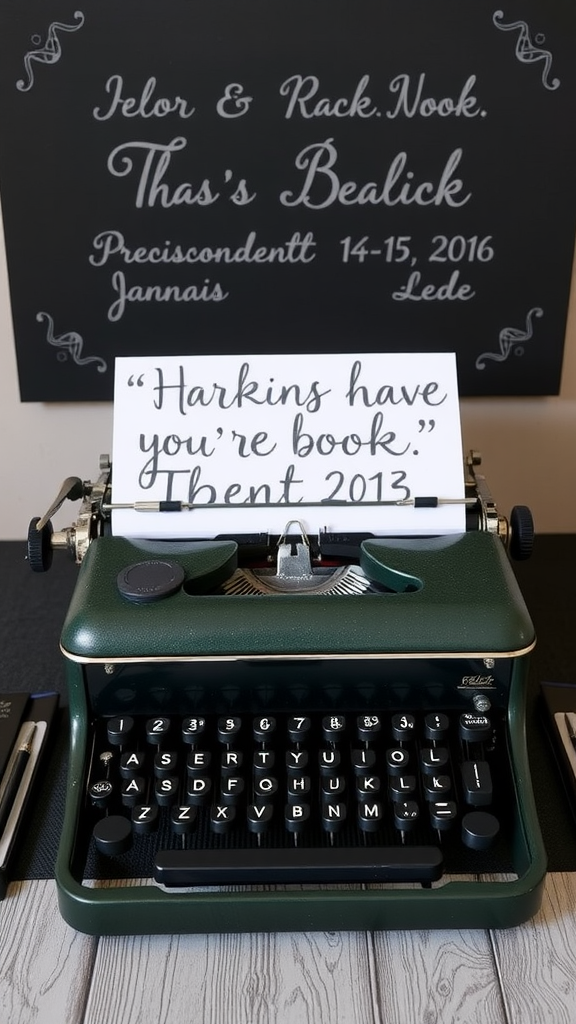 Jelor & Rack.Nook.
Thas's Bealick
Preciscondentt 14-15, 2016
Jannais Lede
“Harkins have
you're book.”
Tbent 2013
A S E R T Y U I O L
A S D F O H J K L k
Z Z X V B N M